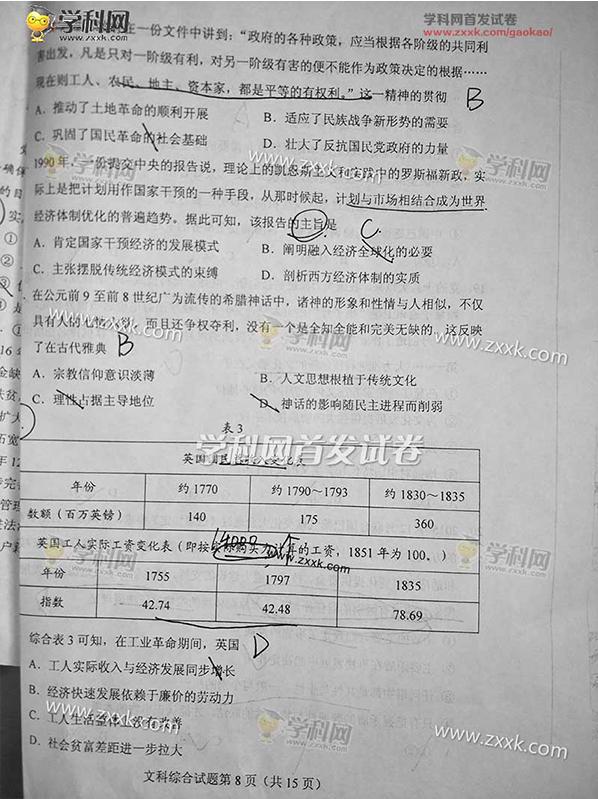 学科网
www.zxxk.com
学科网首发试卷
www.zxxk.com/gaokao/
在一份文件中讲到：“政府的各种政策，应当根据各阶级的共同利
害出发，凡是只对一阶级有利，对另一阶级有害的便不能作为政策决定的根据……
现在则工人、农民、地主、资本家，都是平等的有权利。”这一精神的贯彻 B
A．推动了土地革命的顺利开展
B．适应了民族战争新形势的需要
C．巩固了国民革命的社会基础
D．壮大了反抗国民党政府的力量
学科网
www.zxxk.com
学科网
www.zxxk.com
1990年，一份提交中央的报告说，理论上的凯恩斯主义和实践中的罗斯福新政，实
际上是把计划用作国家干预的一种手段，从那时候起，计划与市场相结合成为世界
经济体制优化的普遍趋势。据此可知，该报告的主旨是 C
A．肯定国家干预经济的发展模式
B．阐明融入经济全球化的必要
C．主张摆脱传统经济模式的束缚
D．剖析西方经济体制的实质
在公元前9至前8世纪广为流传的希腊神话中，诸神的形象和性情与人相似，不仅
具有人的七情六欲，而且还争权夺利，没有一个是全知全能和完美无缺的。这反映
了在古代雅典 B
www.zxxk.com
学科网
www.zxxk.com
A．宗教信仰意识淡薄
B．人文思想根植于传统文化
C．理性占据主导地位
D．神话的影响随民主进程而削弱
表3
学科网首发试卷
英国国民总收入变化表
年份 约1770 约1790～1793 约1830～1835
数额（百万英镑） 140 175 360
英国工人实际工资变化表（即按实际购买力计算的工资，1851年为100。）
学科网
www.zxxk.com
www.zxxk.com
年份 1755 1797 1835
指数 42.74 42.48 78.69
综合表3可知，在工业革命期间，英国 D
A．工人实际收入与经济发展同步增长
B．经济快速发展依赖于廉价的劳动力
C．工人生活整体上没有改善
D．社会贫富差距进一步拉大
www.zxxk.com
学科网
www.zxxk.com
www.zxxk.com
文科综合试题第8页（共15页）